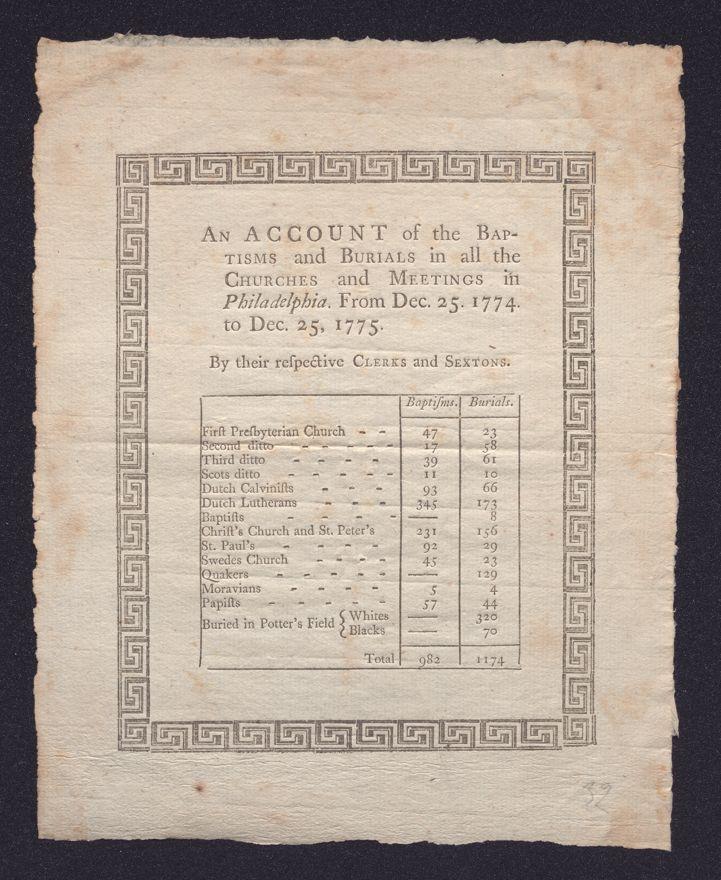 An ACCOUNT of the Bap-
tisms and Burials in all the
Churches and Meetings in
Philadelphia. From Dec. 25. 1774.
to Dec. 25, 1775.
By their reſpective Clerks and Sextons.
Baptiſms. Burials.
Firſt Preſbyterian Church - - 47 23
Second ditto - - - - - 17 58
Third ditto - - - - - 39 61
Scots ditto - - - - - 11 10
Dutch Calviniſts - - - 93 66
Dutch Lutherans - - - 345 173
Baptiſts - - - - — 8
Chriſt's Church and St. Peter's 231 156
St. Paul's - - - - 92 29
Swedes Church - - - - 45 23
Quakers - - - - - — 129
Moravians - - - - 5 4
Papiſts - - - - - 57 44
Buried in Potter's Field { Whites — 320
Blacks — 70
Total 982 1174
32